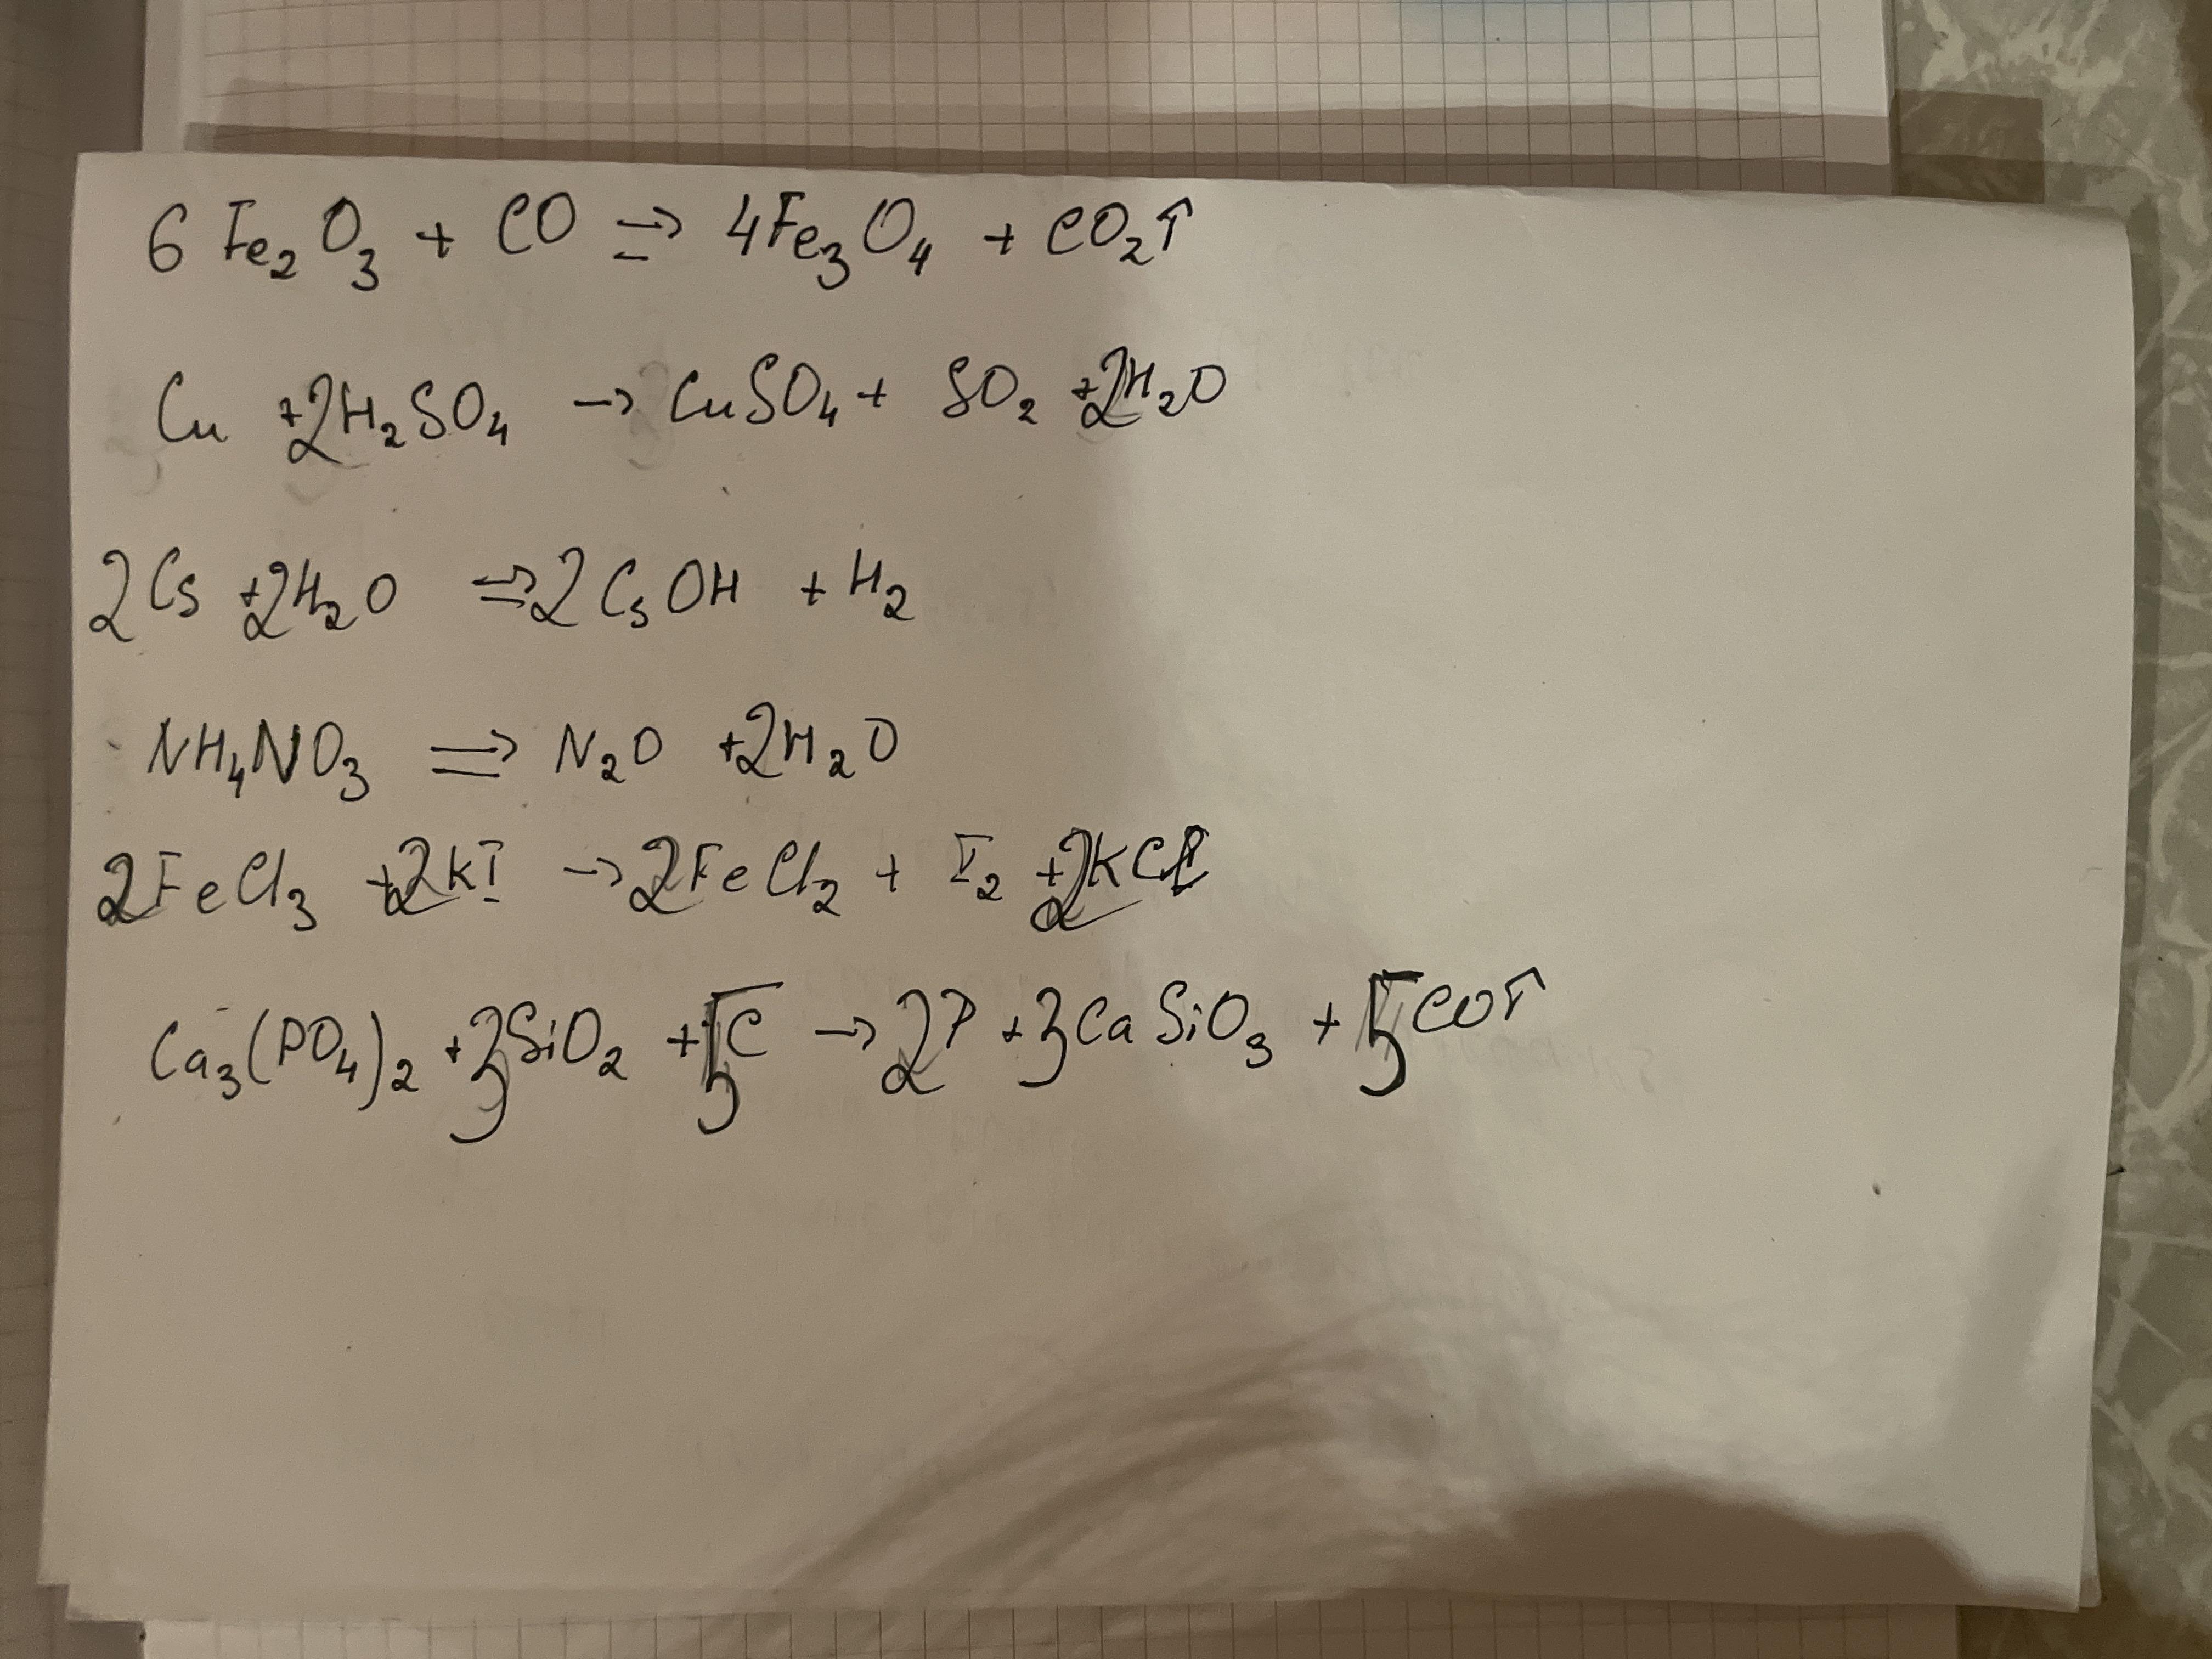 6 Fe₂O₃ + CO ⇒ 4Fe₃O₄ + CO₂↑
Cu +2H₂SO₄ → CuSO₄ + SO₂ +2H₂O
2Cs +2H₂O ⇒ 2CsOH + H₂
NH₄NO₃ ⇒ N₂O +2H₂O
2FeCl₃ +2KI → 2FeCl₂ + I₂ +2KCl
Ca₃(PO₄)₂ +3SiO₂ +5C → 2P +3CaSiO₃ + 5CO↑